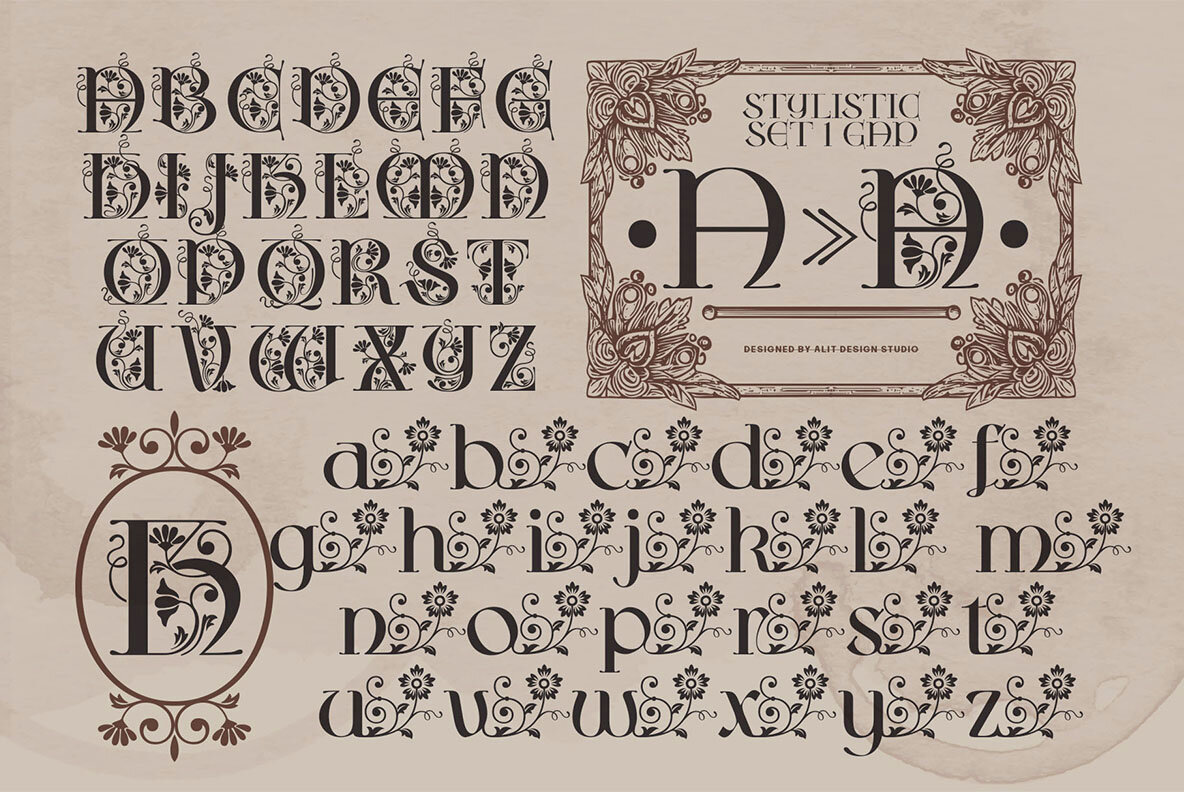 A B C D E F G
H I J K L M N
O P Q R S T
U V W X Y Z
STYLISTIC
SET 1 GAP
A » A
DESIGNED BY ALIT DESIGN STUDIO
K
a b c d e f
g h i j k l m
n o p r s t
u v w x y z